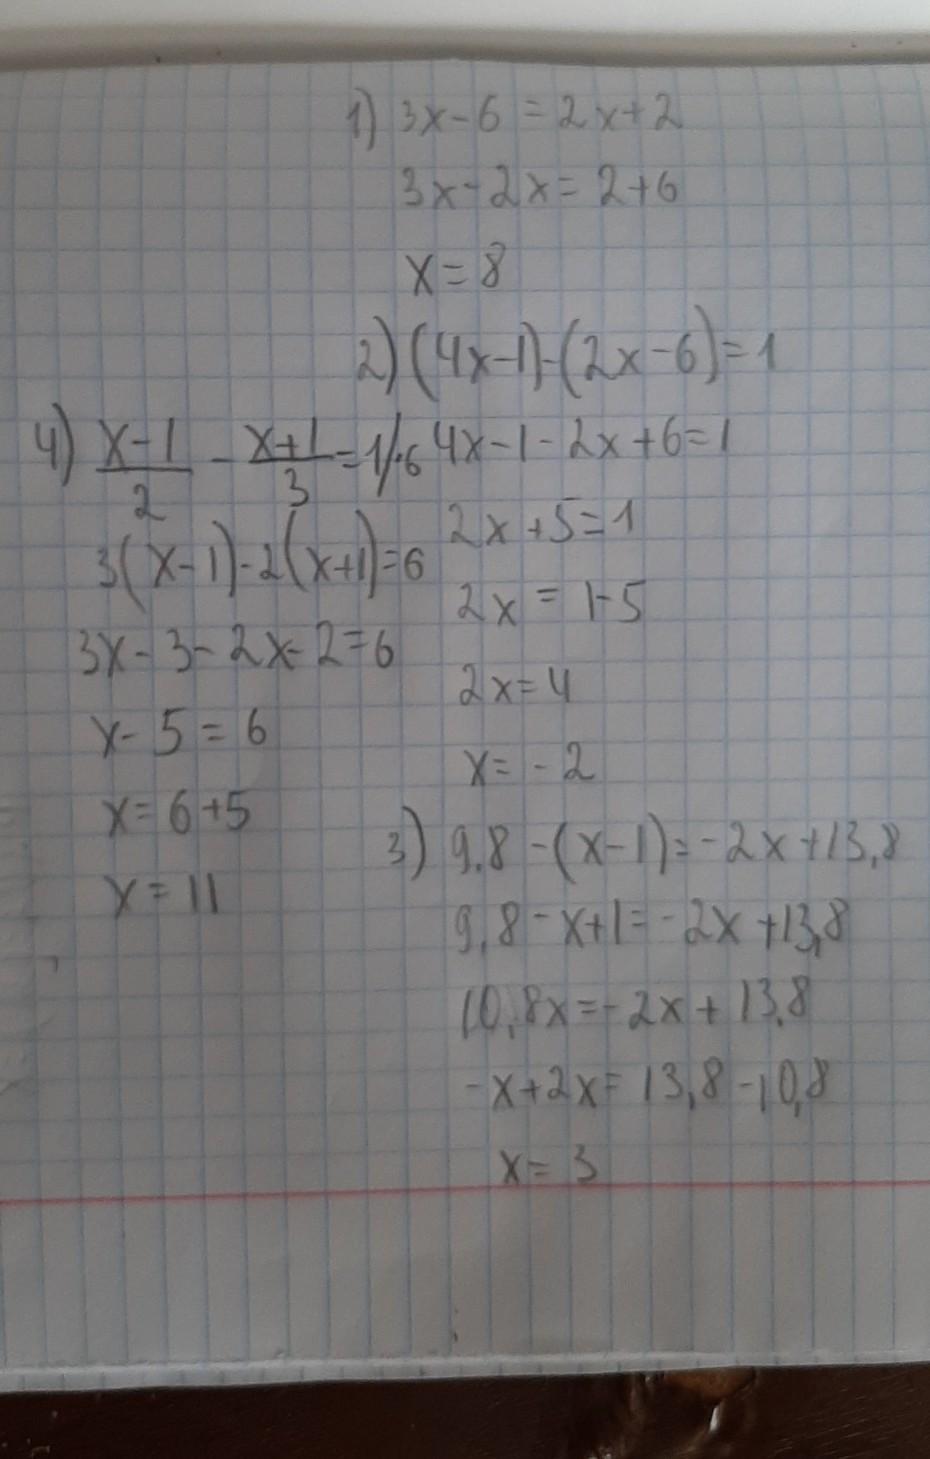 1) 3x-6=2x+2
3x-2x=2+6
x=8
2) (4x-1)-(2x-6)=1
4x-1-2x+6=1
2x+5=1
2x=1-5
2x=4
x=-2
3) 9,8-(x-1)=-2x+13,8
9,8-x+1=-2x+13,8
10,8x=-2x+13,8
-x+2x=13,8-10,8
x=3
4) x-1/2 - x+1/3 =1/·6
3(x-1)-2(x+1)=6
3x-3-2x-2=6
x-5=6
x=6+5
x=11